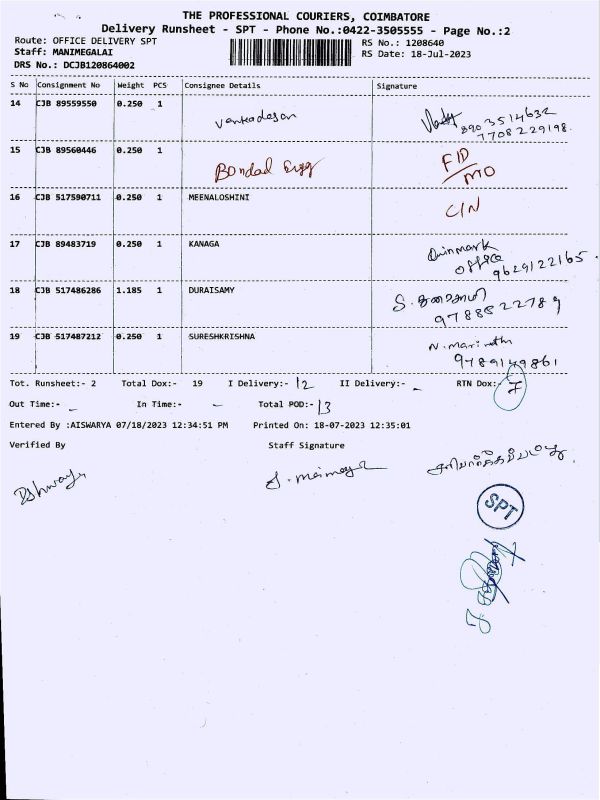 THE PROFESSIONAL COURIERS, COIMBATORE
Delivery Runsheet - SPT - Phone No.:0422-3505555 - Page No.:2
Route: OFFICE DELIVERY SPT RS No.: 1208640
Staff: MANIMEGALAI RS Date: 18-Jul-2023
DRS No.: DCJB120864002
S No Consignment No Weight PCS Consignee Details Signature
14 CJB 89559550 0.250 1 Venkadesan 8903514632
7708229198
15 CJB 89560446 0.250 1 Bondad Engg FID/MO
16 CJB 517590711 0.250 1 MEENALOSHINI C/N
17 CJB 89483719 0.250 1 KANAGA
office
9629122165
18 CJB 517486286 1.185 1 DURAISAMY
9788522789
19 CJB 517487212 0.250 1 SURESHKRISHNA
9789149861
Tot. Runsheet:- 2 Total Dox:- 19 I Delivery:- 12 II Delivery:- - RTN Dox:- 7
Out Time:- - In Time:- - Total POD:- 13
Entered By :AISWARYA 07/18/2023 12:34:51 PM Printed On: 18-07-2023 12:35:01
Verified By Staff Signature
SPT